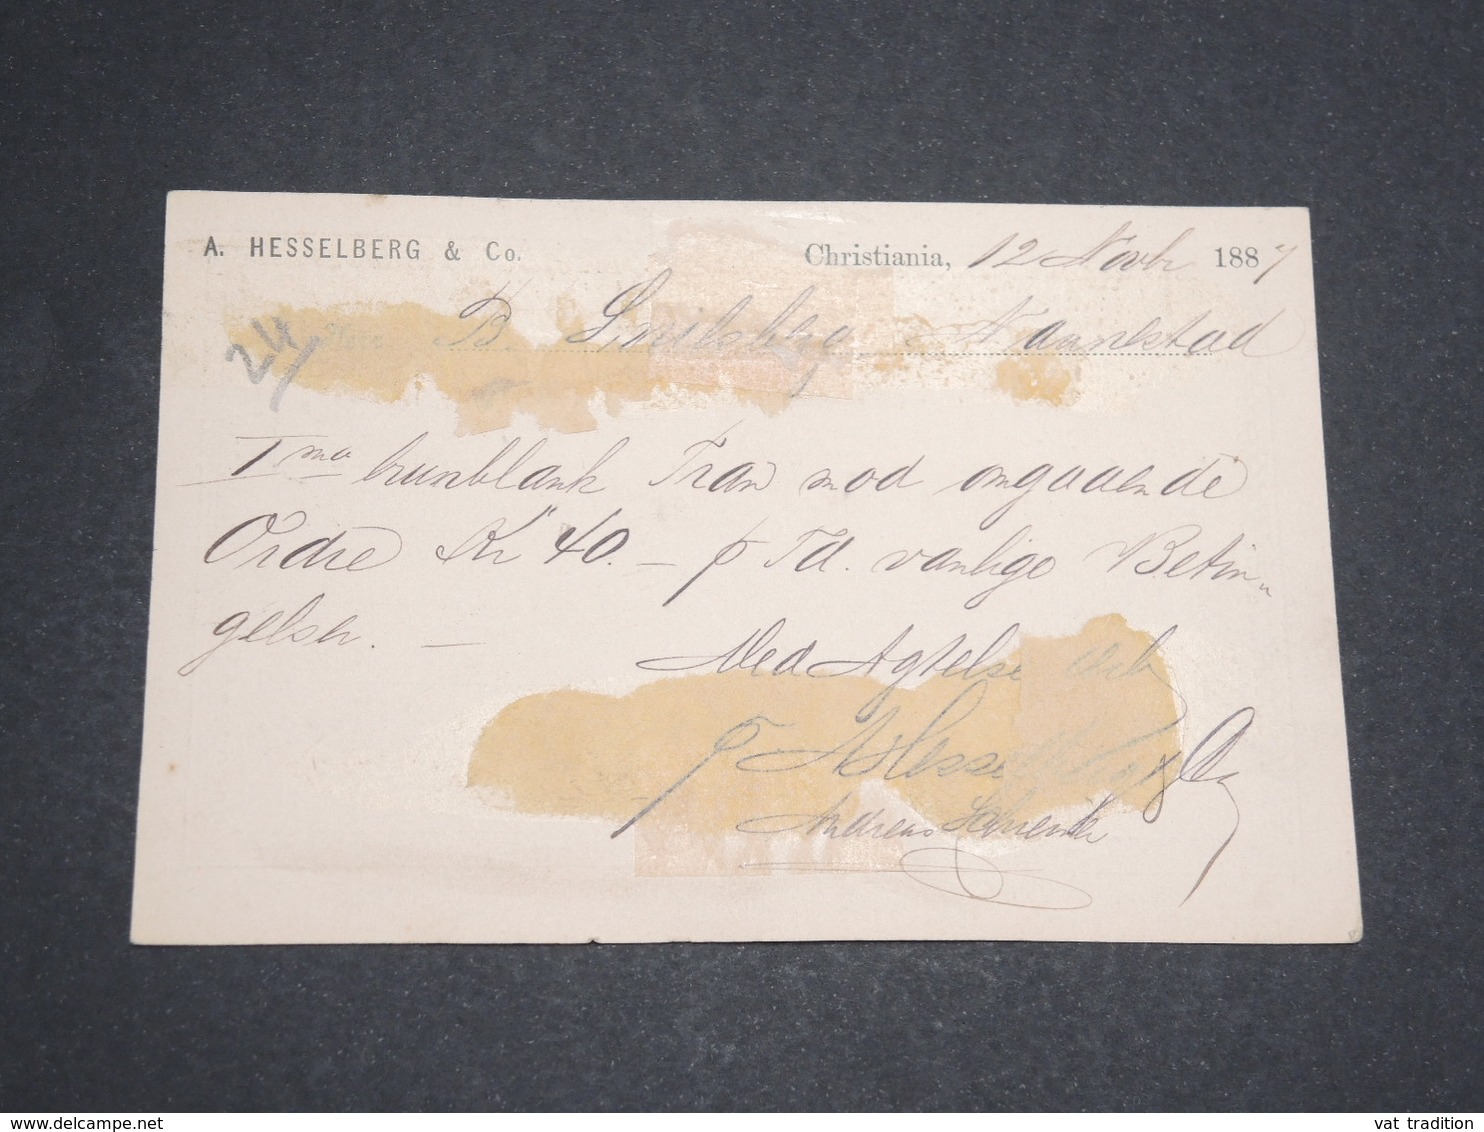 A. HESSELBERG & Co. Christiania, 12 Novbr 1887
24 B.
Ima brunblank Tran mod omgaaende
Ordre Kr 40. — p Td. vanlige Betin„
gelser. —
Med Agtelse
p A Hesselberg & Co
Andreas
delcampe.net
vat tradition